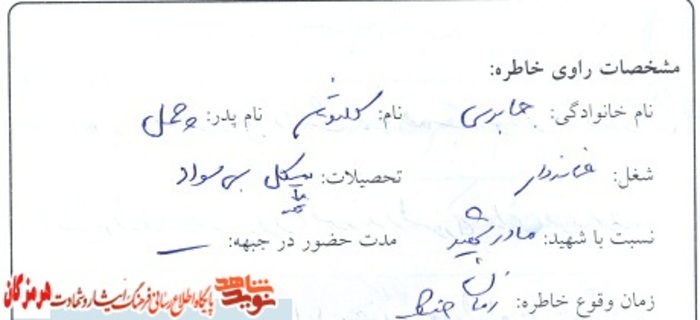 مشخصات راوی خاطره:
نام خانوادگی: جابری نام: کلثوم نام پدر:
شغل: خانه‌دار تحصیلات: بی سواد
نسبت با شهید: مادر شهید مدت حضور در جبهه: ـــ
زمان وقوع خاطره: زمان جنگ
نوید شاهد پایگاه اطلاع رسانی فرهنگ ایثار و شهادت هرمزگان